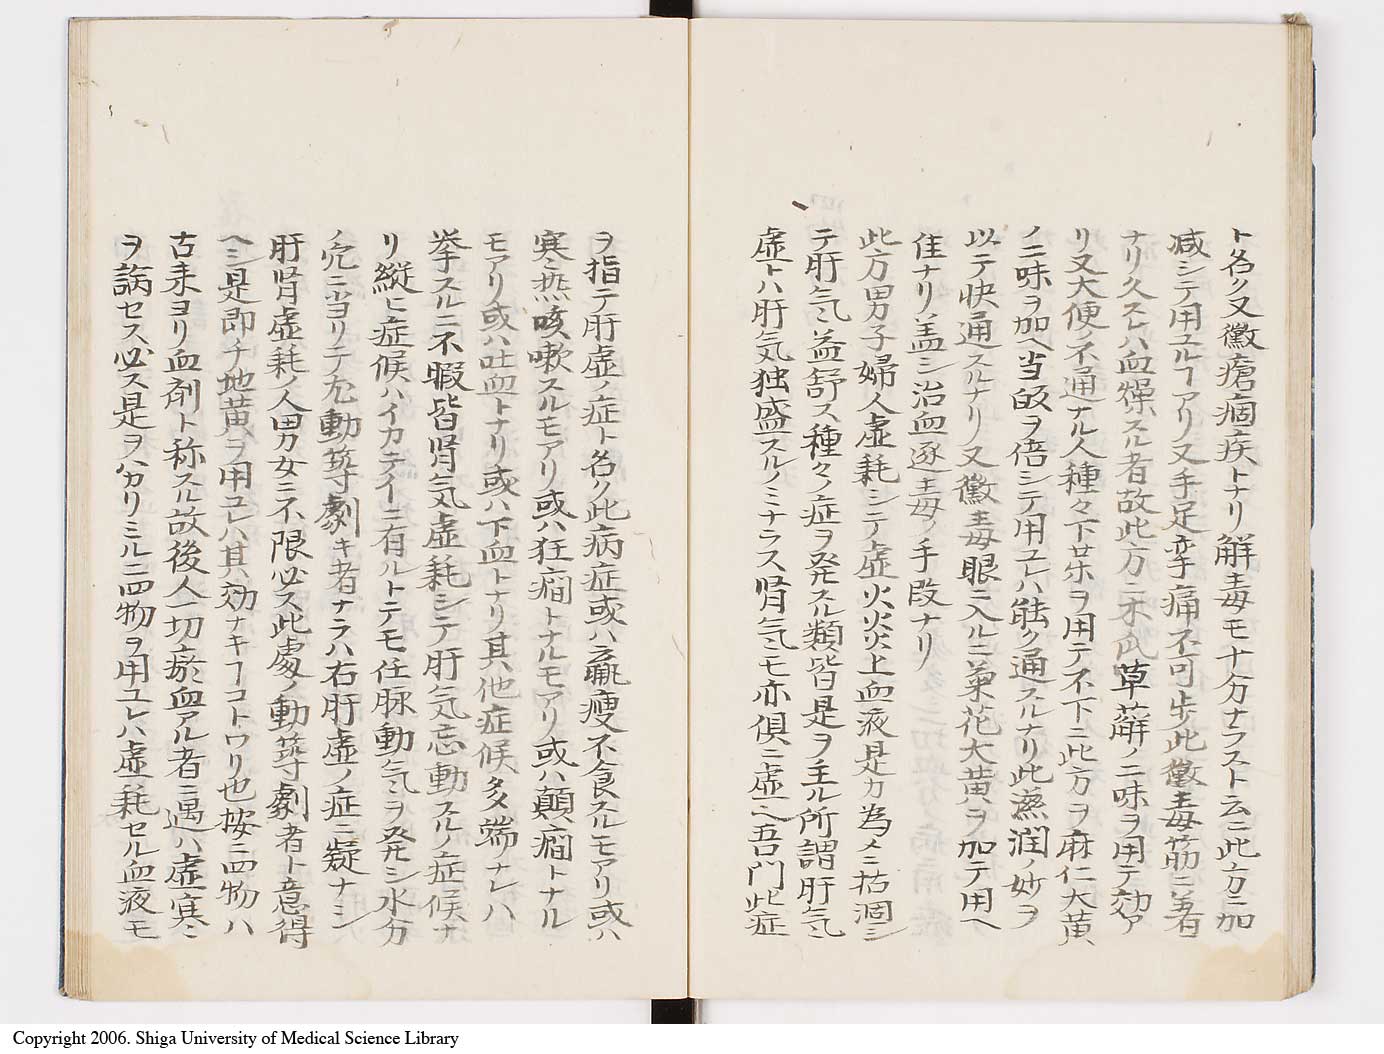 ト名ク又黴瘡痼疾トナリ解毒モナ分ナラスト云ニ此方ニ加
減シテ用ユルヿアリ又手足攣痛不可歩此黴毒筋ニ着
ナリ久スレハ血燥スル者故此方ニ木瓜草薢二味ヲ用テ効ア
リ又大便不通ナル人種々下剤ヲ用テ不下ニ此方ヲ麻仁大黄
ノ二味ヲ加ヘ当皈ヲ倍シテ用ユレハ能ク通スルナリ此滋潤ノ妙ヲ
以テ快通スルナリ又黴毒眼ニ入ルニ菊花大黄ヲ加テ用ヘ
佳ナリ盖シ治血逐毒ノ手段ナリ
此方男子婦人虚耗シテ虚火炎上血液是カ為メニ枯涸シ
テ肝気益舒ス種々ノ症ヲ発スル類皆是ヲ主ル所謂肝気ニ
虚トハ肝気独盛スルノミナラス腎気モ亦倶ニ虚ヘ吾門此症
ヲ指テ肝虚ノ症ト名ク此病症或ハ羸痩不食スルモアリ或ハ
寒熱咳嗽スルモアリ或ハ狂癇トナルモアリ或ハ顛癇トナル
モアリ或ハ吐血トナリ或ハ下血トナリ其他症候多端ナレハ
挙スルニ不暇皆腎気虚耗シテ肝気忘動スルノ症候ナ
リ縦ヒ症候ハイカテイニ有ルトテモ任脉動気ヲ発シ水分
ノ穴ニ当リテ尤動築劇キ者ナラハ右肝虚ノ症ニ凝ナシ
肝腎虚耗ノ人男女ニ不限必ス此処ノ動築劇者ト意得
ヘシ是即チ地黄ヲ用ユレハ其効ナキヿコトワリ也按ニ四物ハ
古来ヨリ血剤ト称スル故後人一切瘀血アル者ニ遇ハ虚寒ニ
ヲ論セス必ス是ヲハカリミルニ四物ヲ用ユレハ虚耗セル血液モ
Copyright 2006. Shiga University of Medical Science Library